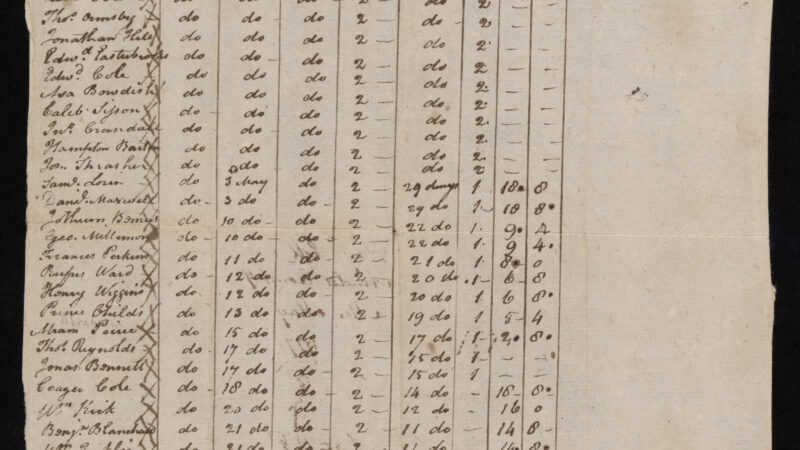 Thos. Ormsby do do do 2 — do 2 — —
Jonathan Hill do do do 2 — do 2 — —
Edwd. Easterbrooks do do — do 2 — do 2 — —
Edwd. Cole do do do 2 — do 2 — —
Asa Bowdish do do do 2 — do 2 — —
Caleb Sisson do do do 2 — do 2 — —
Jno. Crandall do do do 2 — do 2 — —
Hampton Barton do do do 2 — do 2 — —
Jos. Thrasher do do do 2 — do 2 — —
Saml. do 3 May do 2 — 29 days 1 18 8
Danl. Maxwell do 3 do do — 2 — 29 do 1 — 18 8
Jothum Bemus do — 10 do — do 2 — 22 do 1 9 4
Geo. Millimon do — 10 do — do 2 — 22 do 1 9 4
Frances Perkins do 11 do do 2 — 21 do 1 8 0
Rufus Ward do — 12 do do 2 — 20 do 1 — 6 — 8
Henry Wiggins do 12 do do 2 — 20 do 1 6 8
Prince Childs do 13 do do 2 — 19 do 1 5 — 4
Abram Peirce do 15 do do 2 — 17 do 1 — 2 8
Thos. Reynolds do — 17 do do 2 — 15 do 1 — — —
Jonas Bennett do 17 do do 2 — 15 do 1 — —
Ceager Cole do — 18 do do 2 — 14 do — 18 — 8
Wm. Kirk do 20 do do 2 — 12 do — 16 0
Benjn. Blanchard do 21 do do 2 — 11 do — 14 8
do 21 do do 2 — 11 do — 14 8